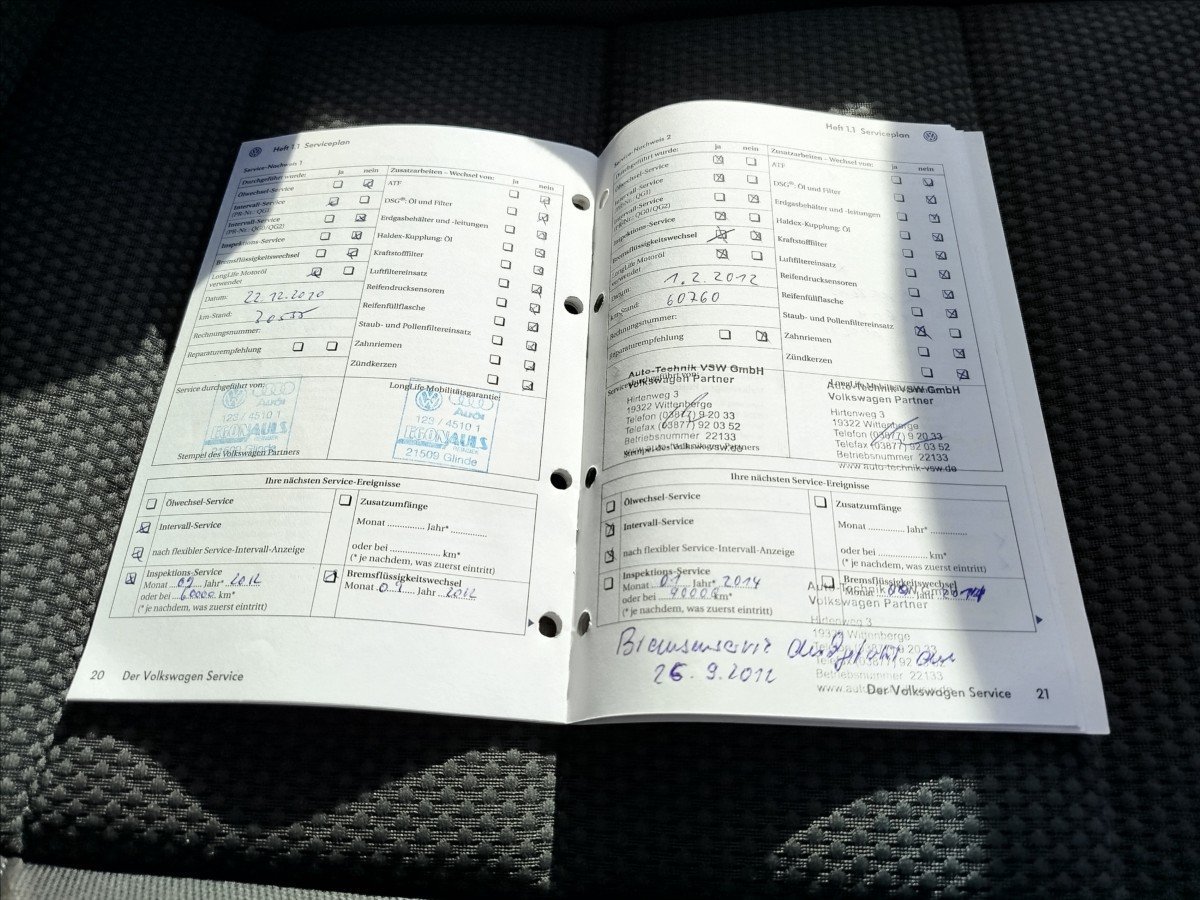 Heft 1.1 Serviceplan
Service-Nachweis 1
Durchgeführt wurde: ja nein
Ölwechsel-Service
Intervall-Service
(PR-Nr.: QG1)
Intervall-Service
(PR-Nr.: QG0/QG2)
Inspektions-Service
Bremsflüssigkeitswechsel
LongLife Motoröl
verwendet
Datum: 22.12.2010
km-Stand:
Rechnungsnummer:
Reparaturempfehlung
Zusatzarbeiten – Wechsel von: ja nein
ATF
DSG®: Öl und Filter
Erdgasbehälter und -leitungen
Haldex-Kupplung: Öl
Kraftstofffilter
Luftfiltereinsatz
Reifendrucksensoren
Reifenfüllflasche
Staub- und Pollenfiltereinsatz
Zahnriemen
Zündkerzen
Service durchgeführt von:
Audi
123 / 4510 1
KRONAULS
21509 Glinde
Stempel des Volkswagen Partners
LongLife Mobilitätsgarantie:
Audi
123 / 4510 1
KRONAULS
21509 Glinde
Ihre nächsten Service-Ereignisse
Ölwechsel-Service
Intervall-Service
nach flexibler Service-Intervall-Anzeige
Inspektions-Service
Monat 09 Jahr* 2012
oder bei 60000 km*
(* je nachdem, was zuerst eintritt)
Zusatzumfänge
Monat ............... Jahr* ...............
oder bei .................... km*
(* je nachdem, was zuerst eintritt)
Bremsflüssigkeitswechsel
Monat 09 Jahr 2012
20 Der Volkswagen Service
Heft 1.1 Serviceplan
Service-Nachweis 2
Durchgeführt wurde: ja nein
Ölwechsel-Service
Intervall-Service
(PR-Nr.: QG1)
Intervall-Service
(PR-Nr.: QG0/QG2)
Inspektions-Service
Bremsflüssigkeitswechsel
LongLife Motoröl
verwendet
Datum: 1.2.2012
km-Stand: 60760
Rechnungsnummer:
Reparaturempfehlung
Zusatzarbeiten – Wechsel von: ja nein
ATF
DSG®: Öl und Filter
Erdgasbehälter und -leitungen
Haldex-Kupplung: Öl
Kraftstofffilter
Luftfiltereinsatz
Reifendrucksensoren
Reifenfüllflasche
Staub- und Pollenfiltereinsatz
Zahnriemen
Zündkerzen
Service durchgeführt von:
Auto-Technik VSW GmbH
Volkswagen Partner
Hirtenweg 3
19322 Wittenberge
Telefon (03877) 9 20 33
Telefax (03877) 92 03 52
Betriebsnummer 22133
www.auto-technik-vsw.de
Stempel des Volkswagen Partners
LongLife Mobilitätsgarantie:
Auto-Technik VSW GmbH
Volkswagen Partner
Hirtenweg 3
19322 Wittenberge
Telefon (03877) 9 20 33
Telefax (03877) 92 03 52
Betriebsnummer 22133
www.auto-technik-vsw.de
Ihre nächsten Service-Ereignisse
Ölwechsel-Service
Intervall-Service
nach flexibler Service-Intervall-Anzeige
Inspektions-Service
Monat 01 Jahr* 2014
oder bei 90000 km*
(* je nachdem, was zuerst eintritt)
Zusatzumfänge
Monat ............ Jahr* ............
oder bei .................... km*
(* je nachdem, was zuerst eintritt)
Bremsflüssigkeitswechsel
Monat Jahr 2014
Auto-Technik VSW GmbH
Volkswagen Partner
Hirtenweg 3
19322 Wittenberge
Betriebsnummer 22133
Bremsenservice
26.9.2012
Der Volkswagen Service 21